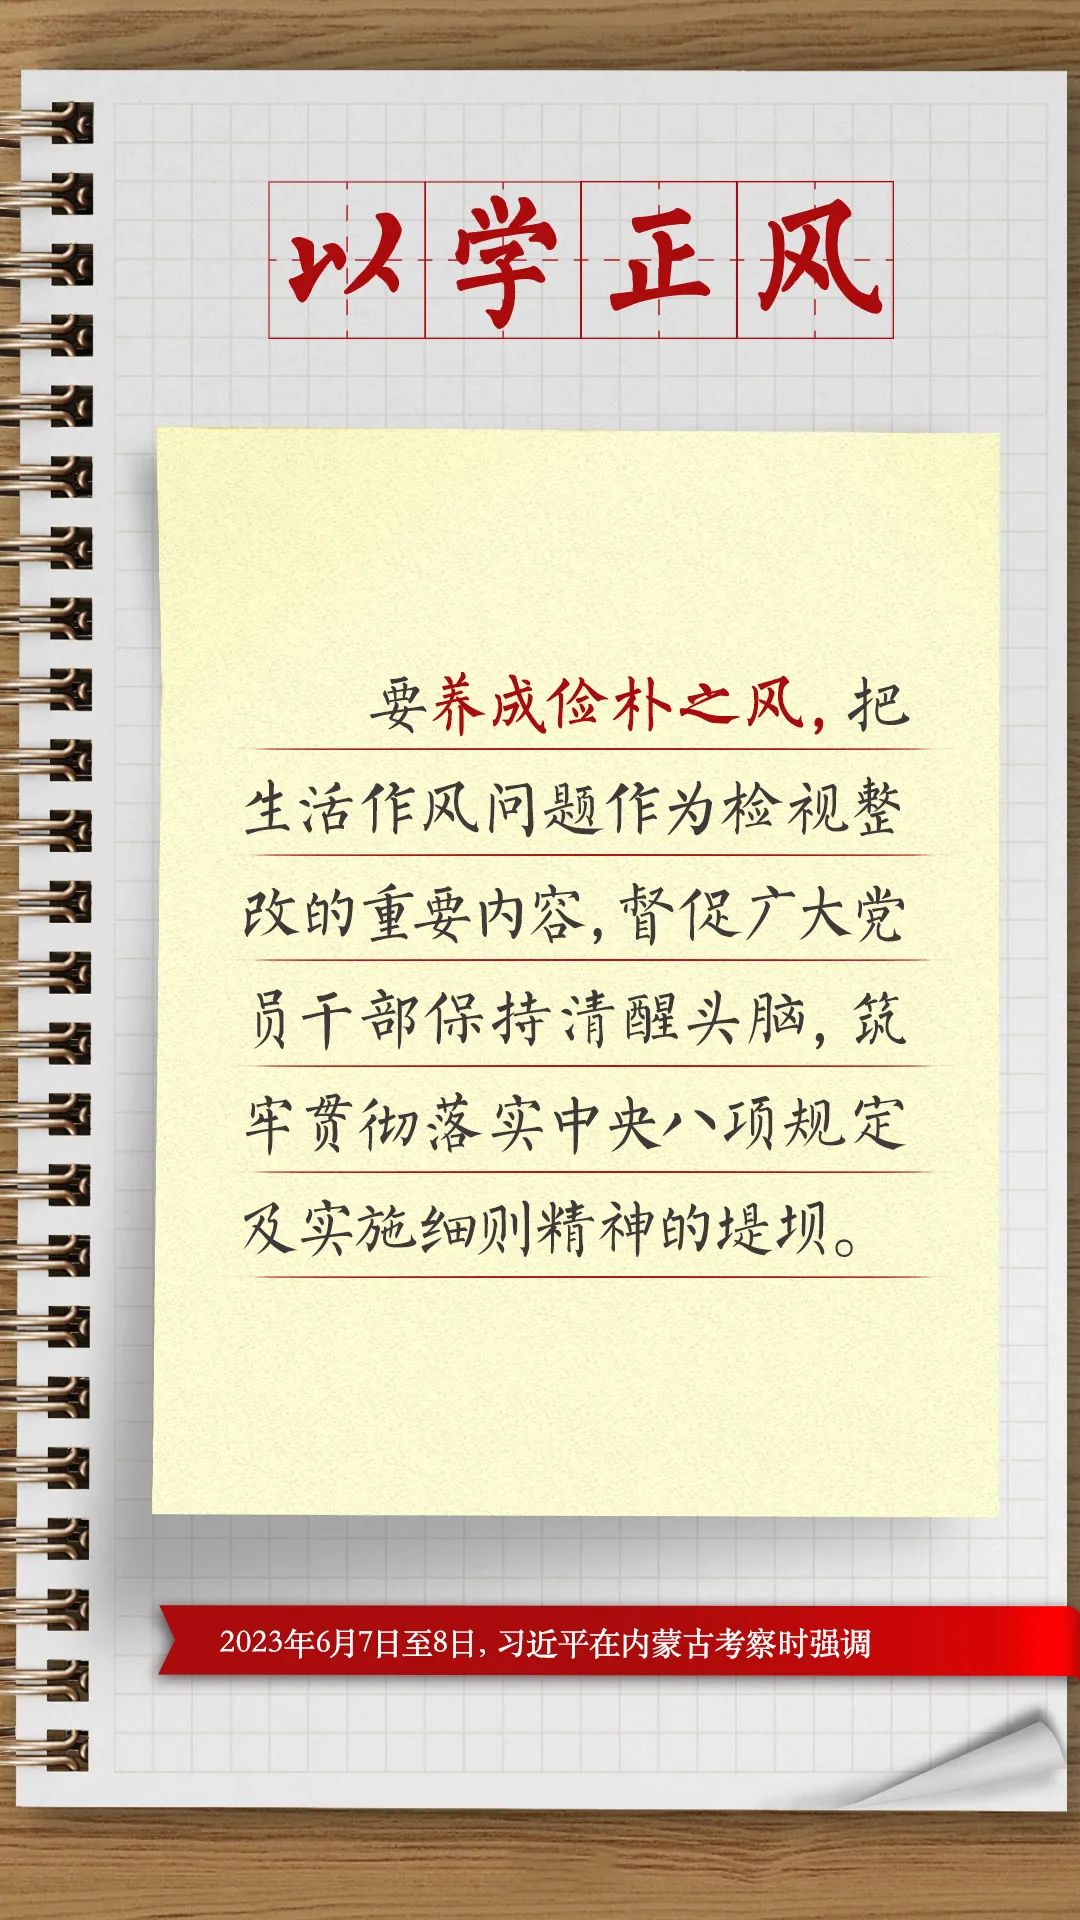 以学正风
要养成俭朴之风，把
生活作风问题作为检视整
改的重要内容，督促广大党
员干部保持清醒头脑，筑
牢贯彻落实中央八项规定
及实施细则精神的堤坝。
2023年6月7日至8日，习近平在内蒙古考察时强调